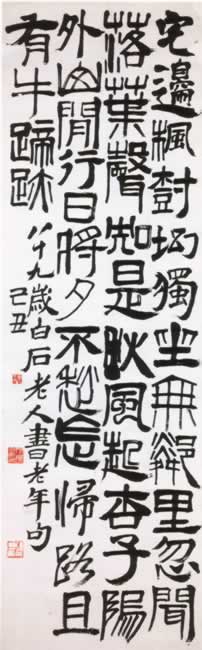 宅邊楓樹坳獨坐無鄰里忽聞
落葉聲知是秋風起杏子隖
外山閒行日將夕不愁忘歸路且
有牛蹄跡八十九歲白石老人書老年句
己丑